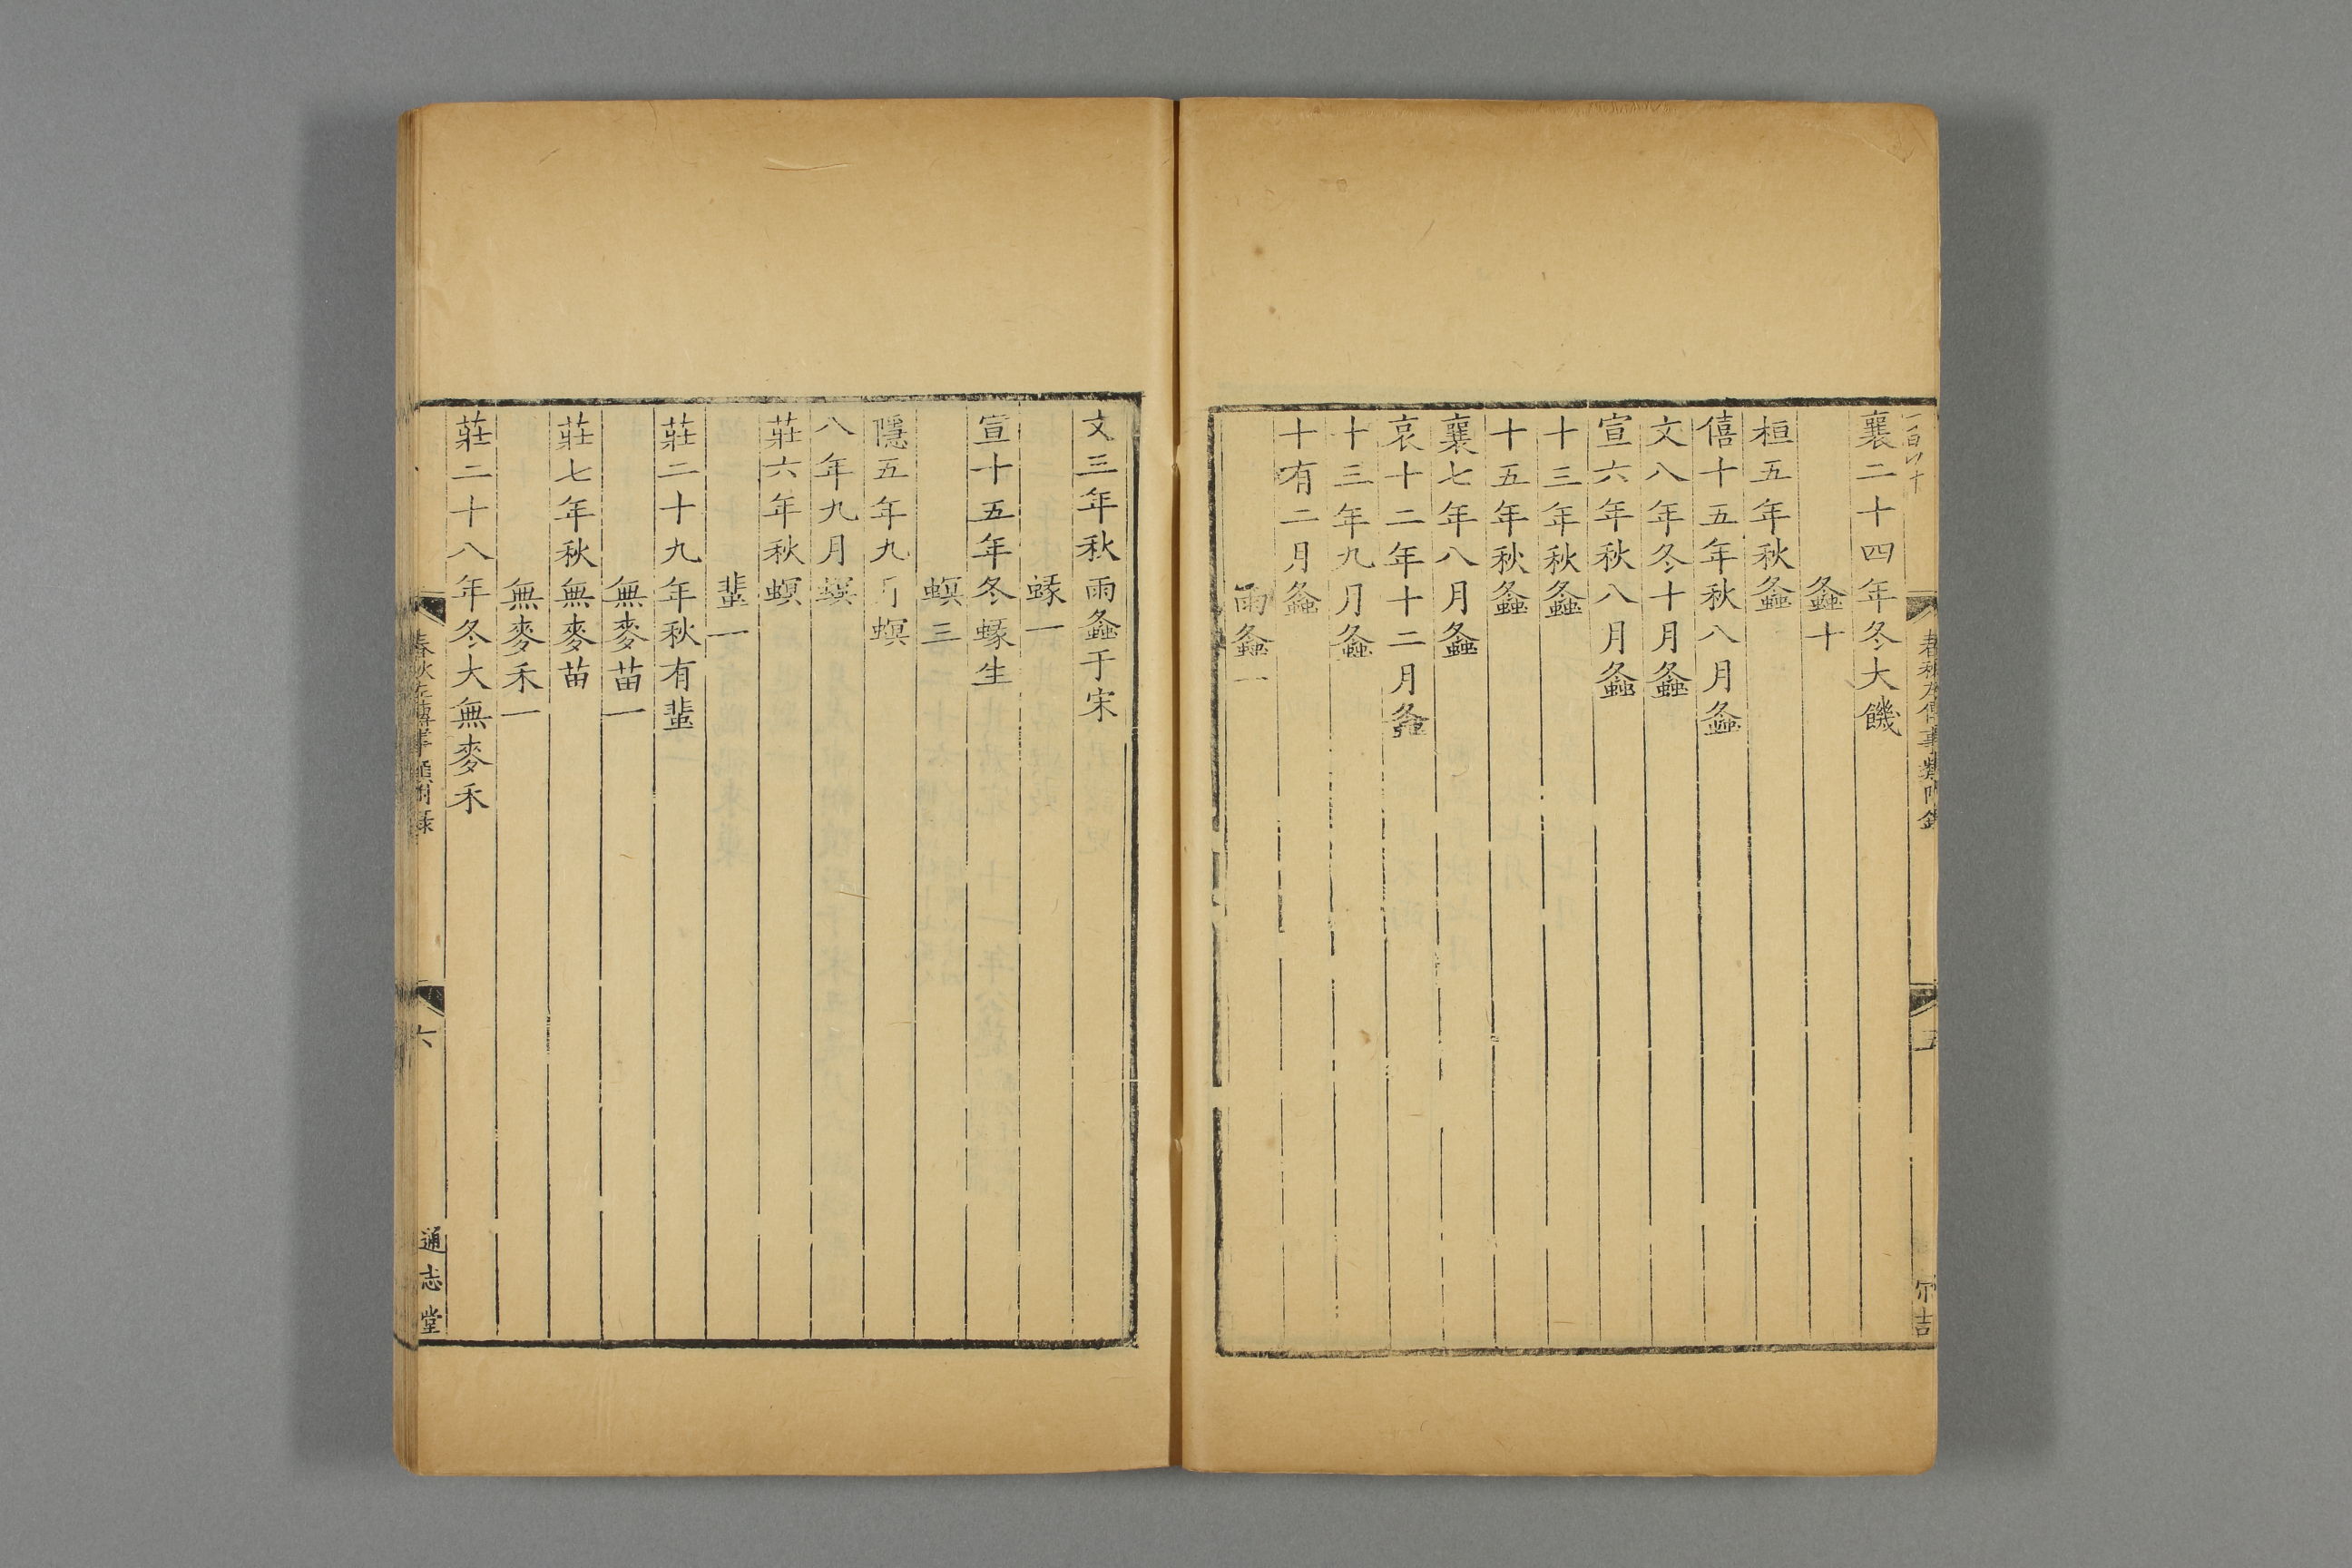 襄二十四年冬大饑
螽十
桓五年秋螽
僖十五年秋八月螽
文八年冬十月螽
宣六年秋八月螽
十三年秋螽
十五年秋螽
襄七年八月螽
哀十二年十二月螽
十三年九月螽
十有二月螽
雨螽一
文三年秋雨螽于宋
蝝一
宣十五年冬蝝生
螟三
隱五年九月螟
八年九月螟
莊六年秋螟
蜚一
莊二十九年秋有蜚
無麥苗一
莊七年秋無麥苗
無麥禾一
莊二十八年冬大無麥禾
春秋左傳事類
六
通志堂